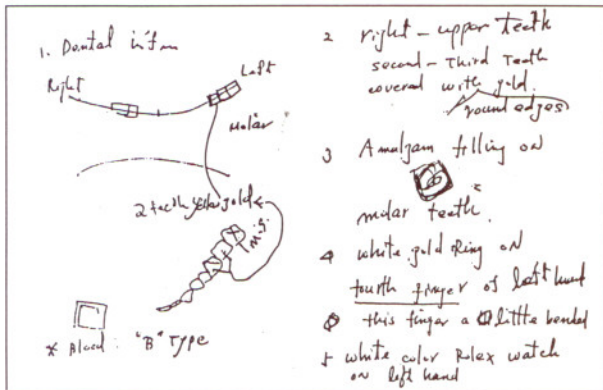 1. Dental infm
Right
Left
Molar
2 teeth gold
* Blood : "B" Type
2 right - upper teeth
second - Third Teeth
covered with gold.
round edges
3 Amalgam filling on
molar teeth.
4 white gold Ring on
fourth finger of left hand
this finger a little bended
5 white color Rolex watch
on left hand